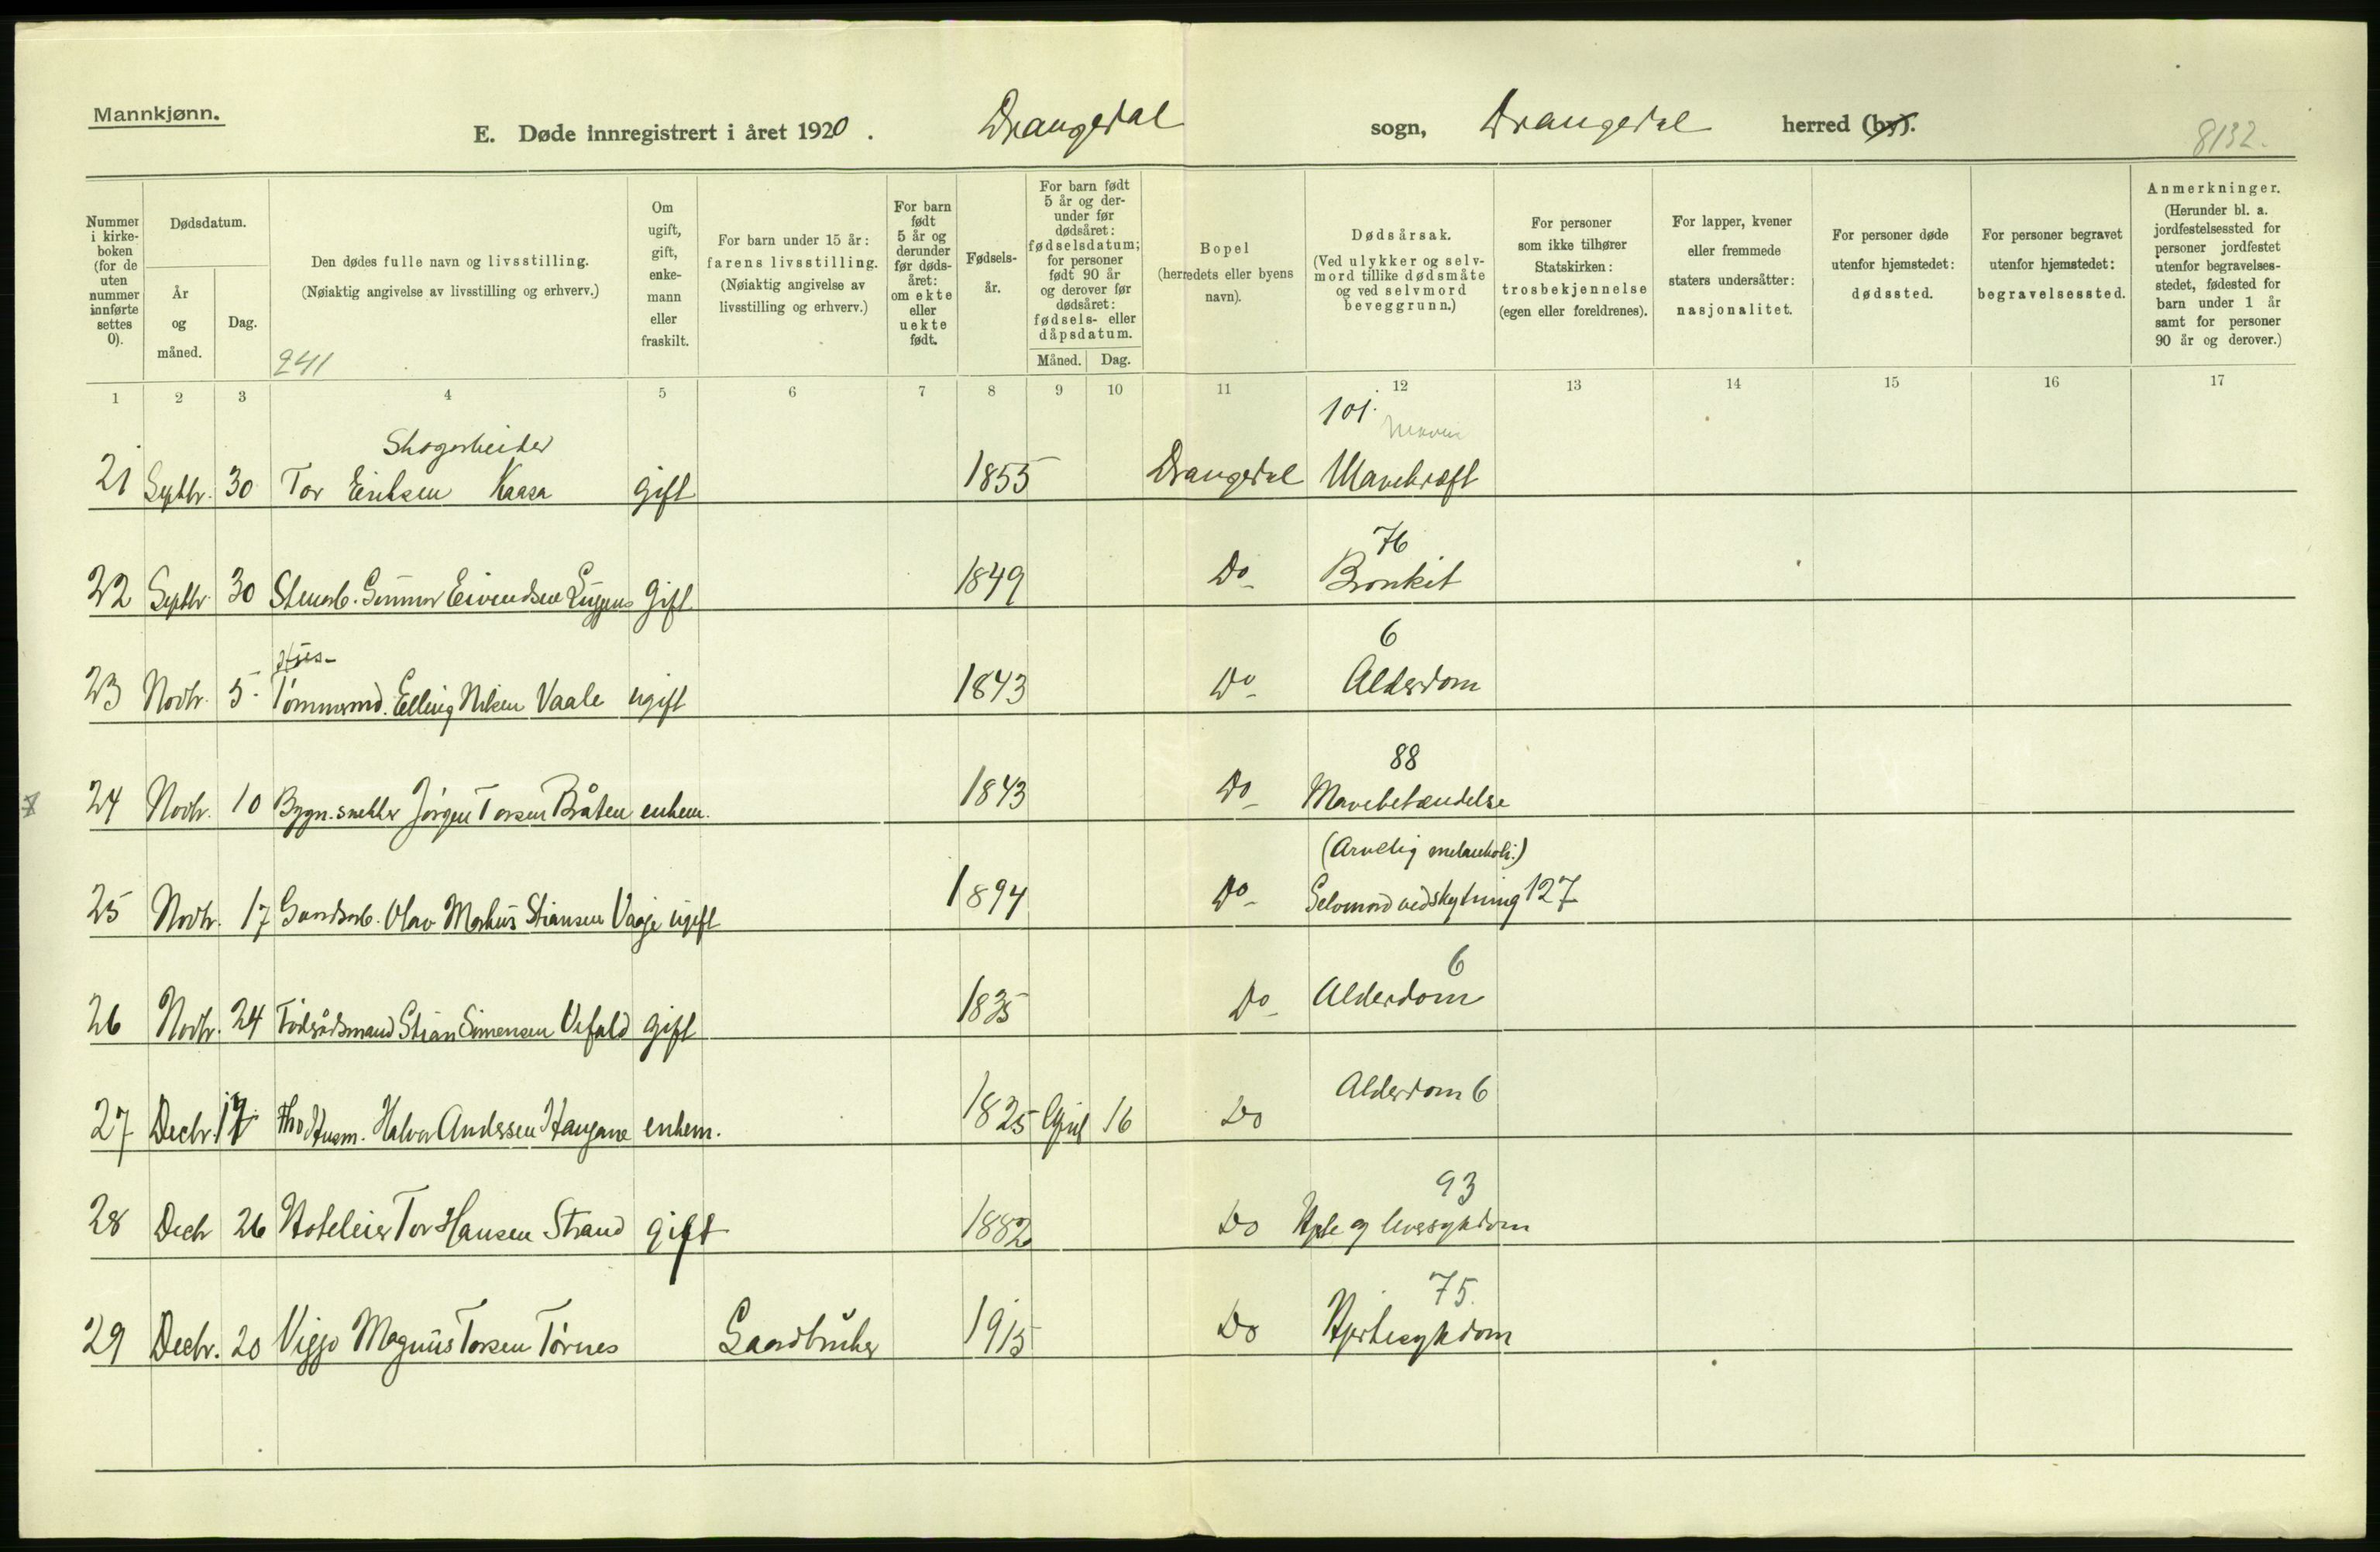 Mannkjønn.
E. Døde innregistrert i året 1920. Drangedal sogn, Drangedal herred (by).
8132.
Nummer i kirkeboken (for de uten nummer innførte settes 0).
Dødsdatum.
År og måned.
Dag.
Den dødes fulle navn og livsstilling.
(Nøiaktig angivelse av livsstilling og erhverv.)
241
Om ugift, gift, enkemann eller fraskilt.
For barn under 15 år: farens livsstilling.
(Nøiaktig angivelse av livsstilling og erhverv.)
For barn født 5 år og derunder før dødsåret: om ekte eller uekte født.
Fødselsår.
For barn født 5 år og derunder før dødsåret: fødselsdatum; for personer født 90 år og derover før dødsåret: fødsels- eller dåpsdatum.
Måned. Dag.
Bopel (herredets eller byens navn).
Dødsårsak.
(Ved ulykker og selvmord tillike dødsmåte og ved selvmord beveggrunn.)
For personer som ikke tilhører Statskirken: trosbekjennelse (egen eller foreldrenes).
For lapper, kvener eller fremmede staters undersåtter: nasjonalitet.
For personer døde utenfor hjemstedet: dødssted.
For personer begravet utenfor hjemstedet: begravelsessted.
Anmerkninger.
(Herunder bl. a. jordfestelsessted for personer jordfestet utenfor begravelsesstedet, fødested for barn under 1 år samt for personer 90 år og derover.)
1 2 3 4 5 6 7 8 9 10 11 12 13 14 15 16 17
101.
Skogarbeider
21 Septbr. 30 Tor Eriksen Kaasa gift 1855 Drangedal Mavekræft
76
22 Septbr. 30 Gunnar Eivendsen gift 1849 Do Bronkit
Hus- 6
23 Novbr. 5. Tømmermd. Elling Nilsen Vaale ugift 1843 Do Alderdom
88
24 Novbr. 10 Bygn.snekker Jørgen Torsen Bråten enkem. 1843 Do Mavebetændelse
(Arvelig melankoli.)
25 Novbr. 17 Olav Markus Stiansen Vaaje ugift 1894 Do Selvmord ved skytning 127
6
26 Novbr. 24 Føderådsmand Stian Simensen Vefald gift 1835 Do Alderdom
27 Decbr. 17 Husm. Halvor Anderssen Haugane enkem. 1825 April 16 Do Alderdom 6
93
28 Decbr 26 Hoteleier Tor Hansen Strand gift 1882 Do og leversykdom
75.
29 Decbr. 20 Viggo Magnus Torsen Tørnes Gaardbruker 1915 Do Hjertesykdom